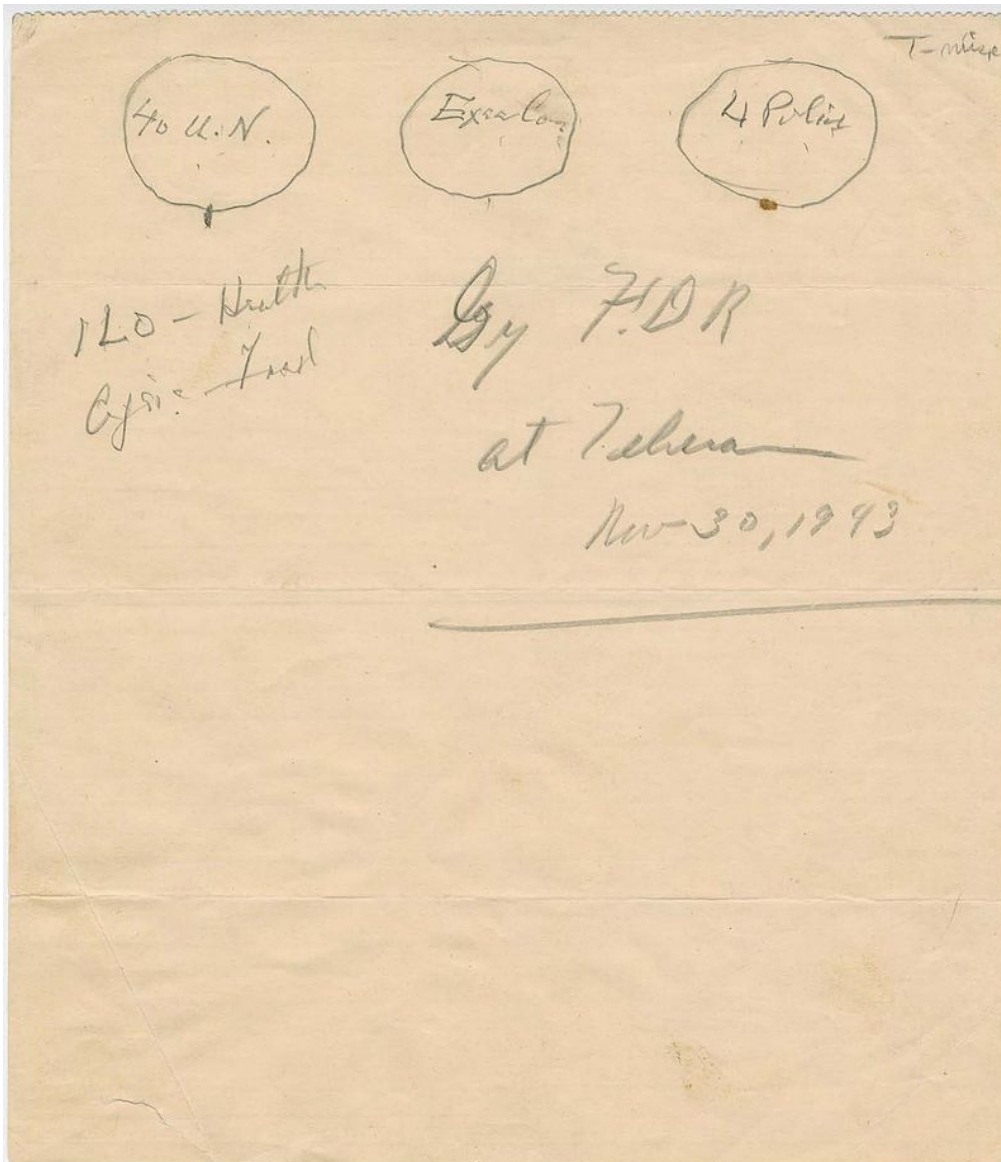 T-misc
40 U.N.
Exec Com
4 Police
ILO - Health
Agric - Food
By F.D R
at Teheran
Nov-30, 1943